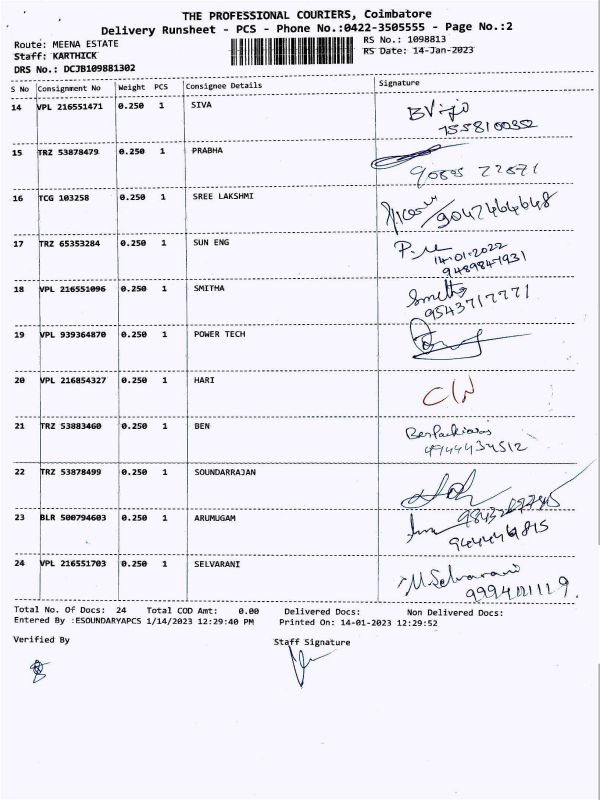 THE PROFESSIONAL COURIERS, Coimbatore
Delivery Runsheet - PCS - Phone No.:0422-3505555 - Page No.:2
Route: MEENA ESTATE RS No.: 1098813
Staff: KARTHICK RS Date: 14-Jan-2023
DRS No.: DCJB109881302
S No Consignment No Weight PCS Consignee Details Signature
14 VPL 216551471 0.250 1 SIVA
7558100352
15 TRZ 53878479 0.250 1 PRABHA
16 TCG 103258 0.250 1 SREE LAKSHMI
9047464648
17 TRZ 65353284 0.250 1 SUN ENG
14-01-2022
9489847931
18 VPL 216551096 0.250 1 SMITHA
Smitha
9543717771
19 VPL 939364870 0.250 1 POWER TECH
20 VPL 216854327 0.250 1 HARI
21 TRZ 53883460 0.250 1 BEN
9944434512
22 TRZ 53878499 0.250 1 SOUNDARRAJAN
23 BLR 500794603 0.250 1 ARUMUGAM
24 VPL 216551703 0.250 1 SELVARANI
M. Selvarani
Total No. Of Docs: 24 Total COD Amt: 0.00 Delivered Docs: Non Delivered Docs:
Entered By :ESOUNDARYAPCS 1/14/2023 12:29:40 PM Printed On: 14-01-2023 12:29:52
Verified By Staff Signature